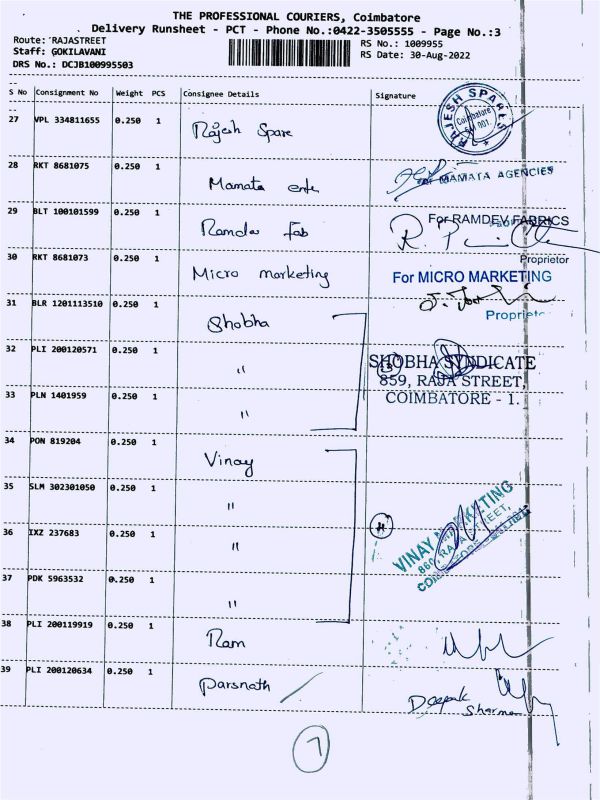 THE PROFESSIONAL COURIERS, Coimbatore
Delivery Runsheet - PCT - Phone No.:0422-3505555 - Page No.:3
Route: RAJASTREET
Staff: GOKILAVANI
DRS No.: DCJB100995503
RS No.: 1009955
RS Date: 30-Aug-2022
S No Consignment No Weight PCS Consignee Details Signature
27 VPL 334811655 0.250 1 Rajesh Spare
RAJESH SPARES
Coimbatore
28 RKT 8681075 0.250 1 Mamata
MAMATA AGENCIES
29 BLT 100101599 0.250 1 Ramdev Fab
For RAMDEV FABRICS
Proprietor
30 RKT 8681073 0.250 1 Micro marketing
For MICRO MARKETING
Proprietor
31 BLR 1201113510 0.250 1 Shobha
32 PLI 200120571 0.250 1 "
SHOBHA SYNDICATE
859, RAJA STREET,
COIMBATORE - 1.
33 PLN 1401959 0.250 1 "
34 PON 819204 0.250 1 Vinay
35 SLM 302301050 0.250 1 "
36 IXZ 237683 0.250 1 "
VINAY MARKETING
860, RAJA STREET,
37 PDK 5963532 0.250 1 "
38 PLI 200119919 0.250 1 Ram
39 PLI 200120634 0.250 1 Parsnath
Deepak
Sharma
7